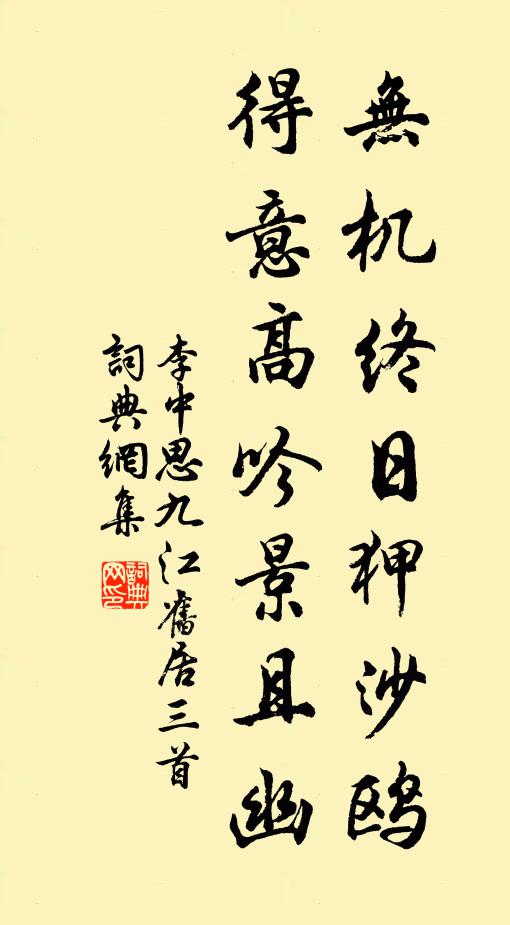 無机終日狎沙鸥
得意高吟景且幽
李中思九江舊居三首
詞典網集
詞典網印